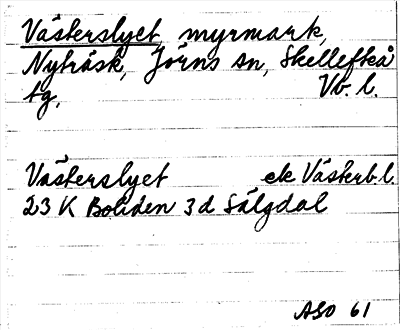 Västerslyet, myrmark,
Nyträsk, Jörns sn, Skellefteå
tg, Vb. l.
Västerslyet ek Västerb. l.
23 K Boliden 3d Sälgdal
ASO 61